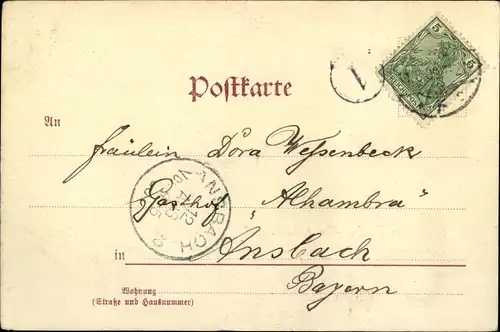 Postkarte
5 5
V
An
fräulein Dora Wessenbeck
Gasthof „Alhambra“
in Ansbach
Bayern
ANSBACH 2
Wohnung
(Straße und Hausnummer)